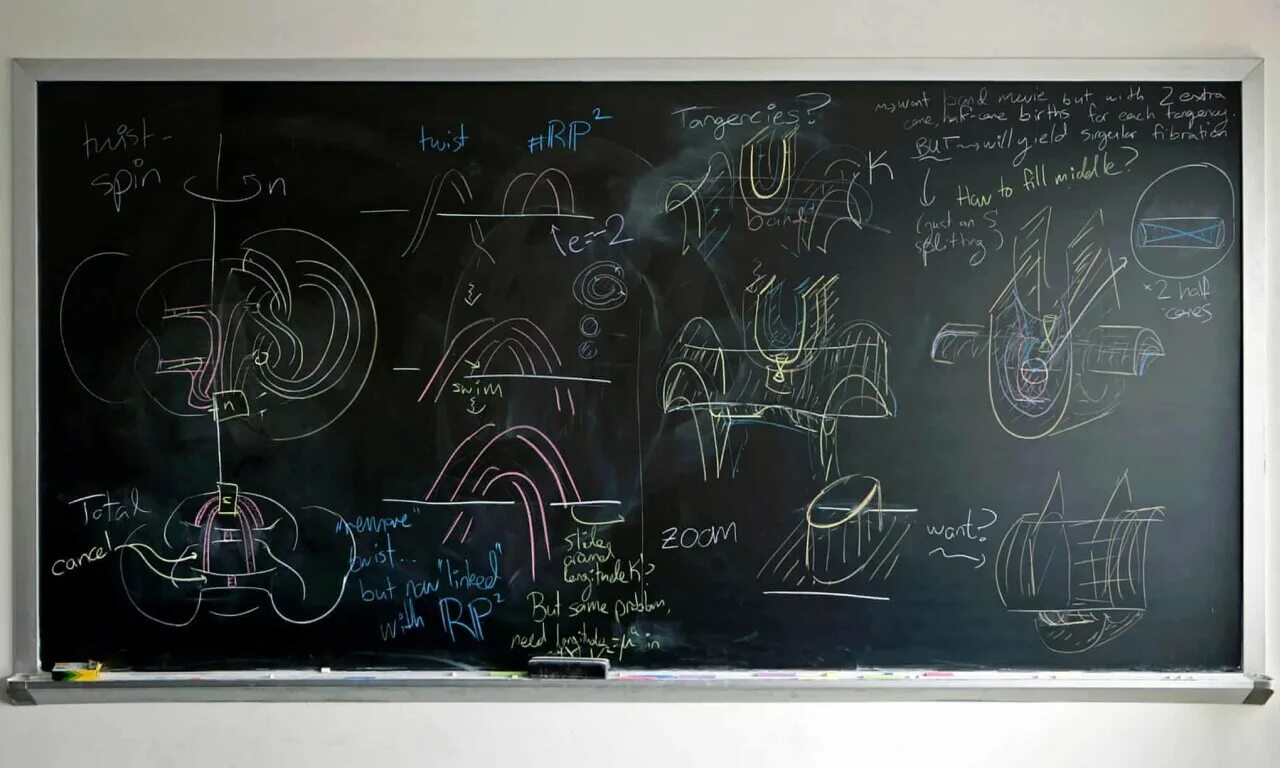 twist-
spin
n
n
Total
cancel
twist
#RP²
e=-2
swim
"remove"
twist...
but now "linked"
with RP²
slide
around
longitude K?
But same problem,
need longitude = in
Tangencies?
K
band
want band movie but with 2 extra
cone, half-cone births for each tangency.
BUT will yield singular fibration
How to fill middle?
(just an S
splitting)
2 half
cones
zoom
want?